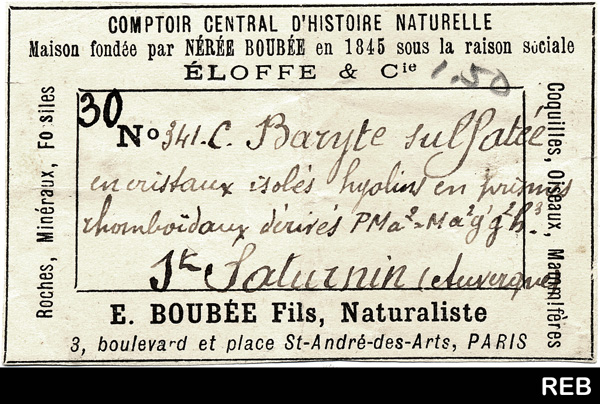 COMPTOIR CENTRAL D'HISTOIRE NATURELLE
Maison fondée par NÉRÉE BOUBÉE en 1845 sous la raison sociale
ÉLOFFE & Cie
1.50
Roches, Minéraux, Fossiles
30
No 341.C. Baryte sulfatée
en cristaux isolés hyalins en prismes
rhomboïdaux dérivés PMa2 = Ma2 g' g2 h3.
St Saturnin (Auvergne)
Coquilles, Oiseaux, Mammifères
E. BOUBÉE Fils, Naturaliste
3, boulevard et place St-André-des-Arts, PARIS
REB